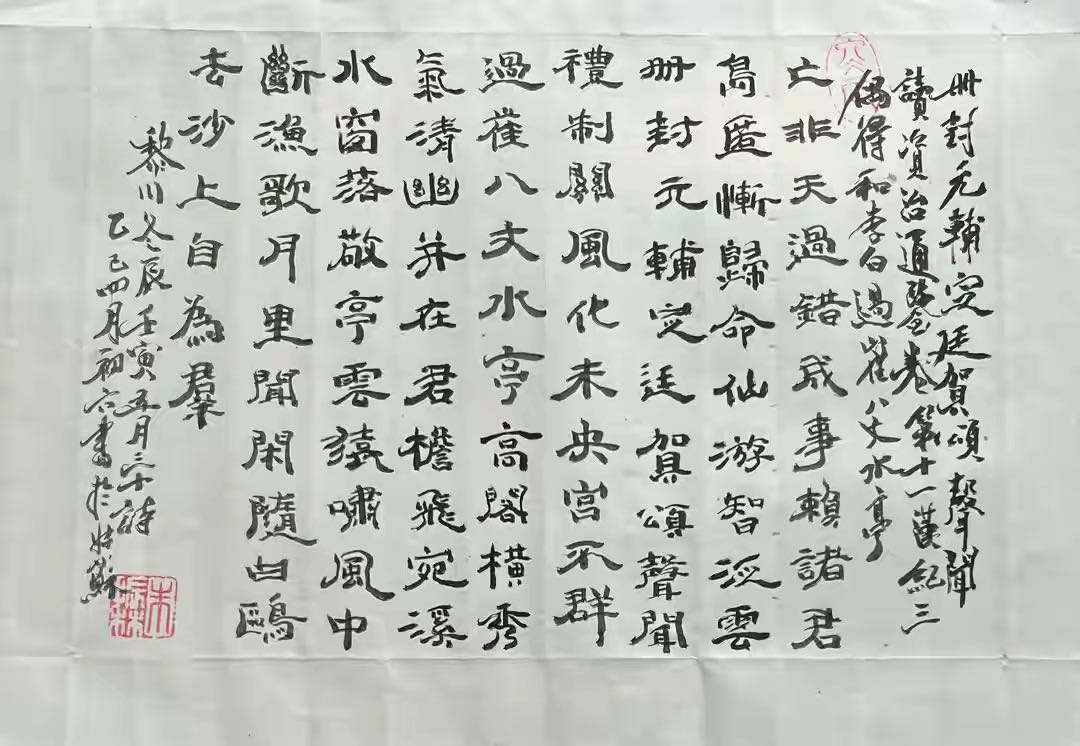 册封元輔定廷賀頌聲聞
讀資治通鑒卷第十一漢紀三
偶得和李白過崔八丈水亭
亡非天過錯成事賴諸君
島匿慚歸命仙游智泛雲
册封元輔定廷賀頌聲聞
禮制關風化未央宮不群
過崔八丈水亭高閣橫秀
氣清幽并在君檐飛宛溪
水窗落敬亭雲猿嘯風中
斷漁歌月里聞閑隨白鷗
去沙上自為羣
黎川冬辰壬寅五月二十詩
乙巳四月初六書於姑蘇